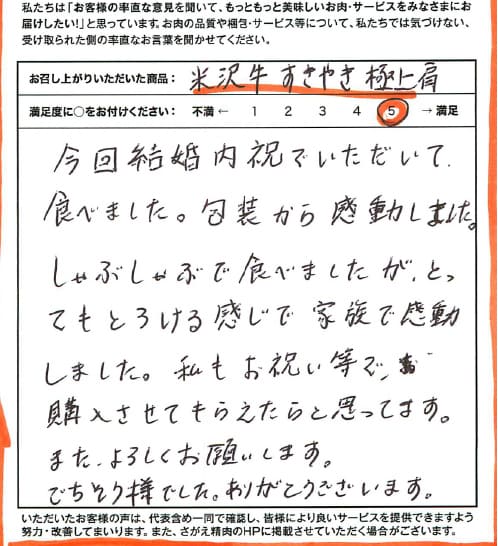 私たちは「お客様の率直な意見を聞いて、もっともっと美味しいお肉・サービスをみなさまにお
届けしたい！」と思っています。お肉の品質や梱包・サービス等について、私たちでは気づけない、
受け取られた側の率直なお言葉を聞かせてください。
お召し上がりいただいた商品： 米沢牛 すきやき 極上肩
満足度に○をお付けください： 不満 ← 1 2 3 4 5 → 満足
今回結婚内祝でいただいて、
食べました。包装から感動しました。
しゃぶしゃぶで食べましたが、とっ
てもとろける感じで家族で感動
しました。私もお祝い等で、
購入させてもらえたらと思ってます。
また、よろしくお願いします。
ごちそう様でした。ありがとうございます。
いただいたお客様の声は、代表含め一同で確認し、皆様により良いサービスを提供できますよう
努力・改善してまいります。また、さがえ精肉のHPに掲載させていただく場合がございます。